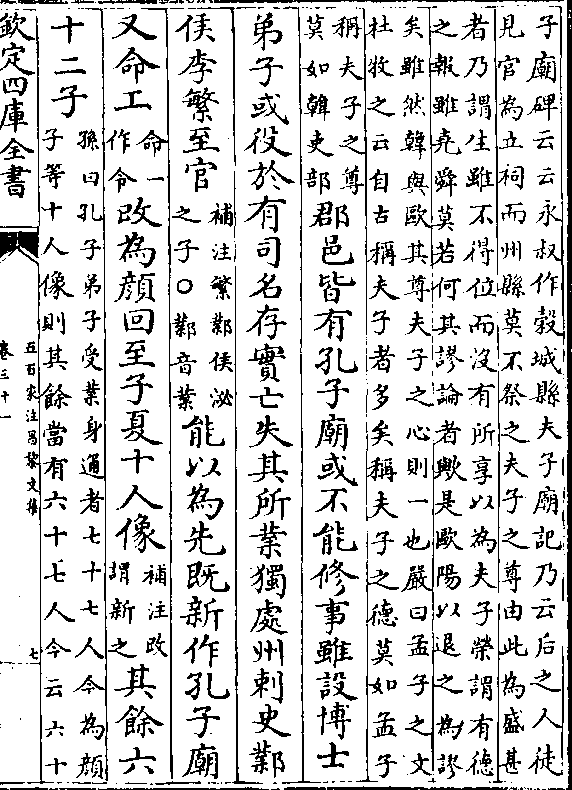 子廟碑云云永叔作榖城縣夫子廟記乃云后之人徒
見官為立祠而州縣莫不祭之夫子之尊由此為盛甚
者乃謂生雖不得位而沒有所享以為夫子榮謂有德
之報雖堯舜莫若何其謬論者歟是歐陽以退之為謬
矣雖然韓與歐其尊夫子之心則一也嚴曰孟子之文
杜牧之云自古稱夫子者多矣稱夫子之德莫如孟子
稱夫子之尊
莫如韓吏部
郡邑皆有孔子廟或不能修事雖設博士
弟子或役於有司名存實亡失其所業獨處州刺史鄴
侯李繁至官
補注繁鄴侯泌
之子○鄴音業
能以為先既新作孔子廟
又命工
命一
作令
改為顏回至子夏十人像
補注改
謂新之
其餘六
十二子
孫曰孔子弟子受業身通者七十七人今為顏
子等十人像則其餘當有六十七人今云六十
欽定四庫全書
五百家注昌黎文集
卷三十一
七